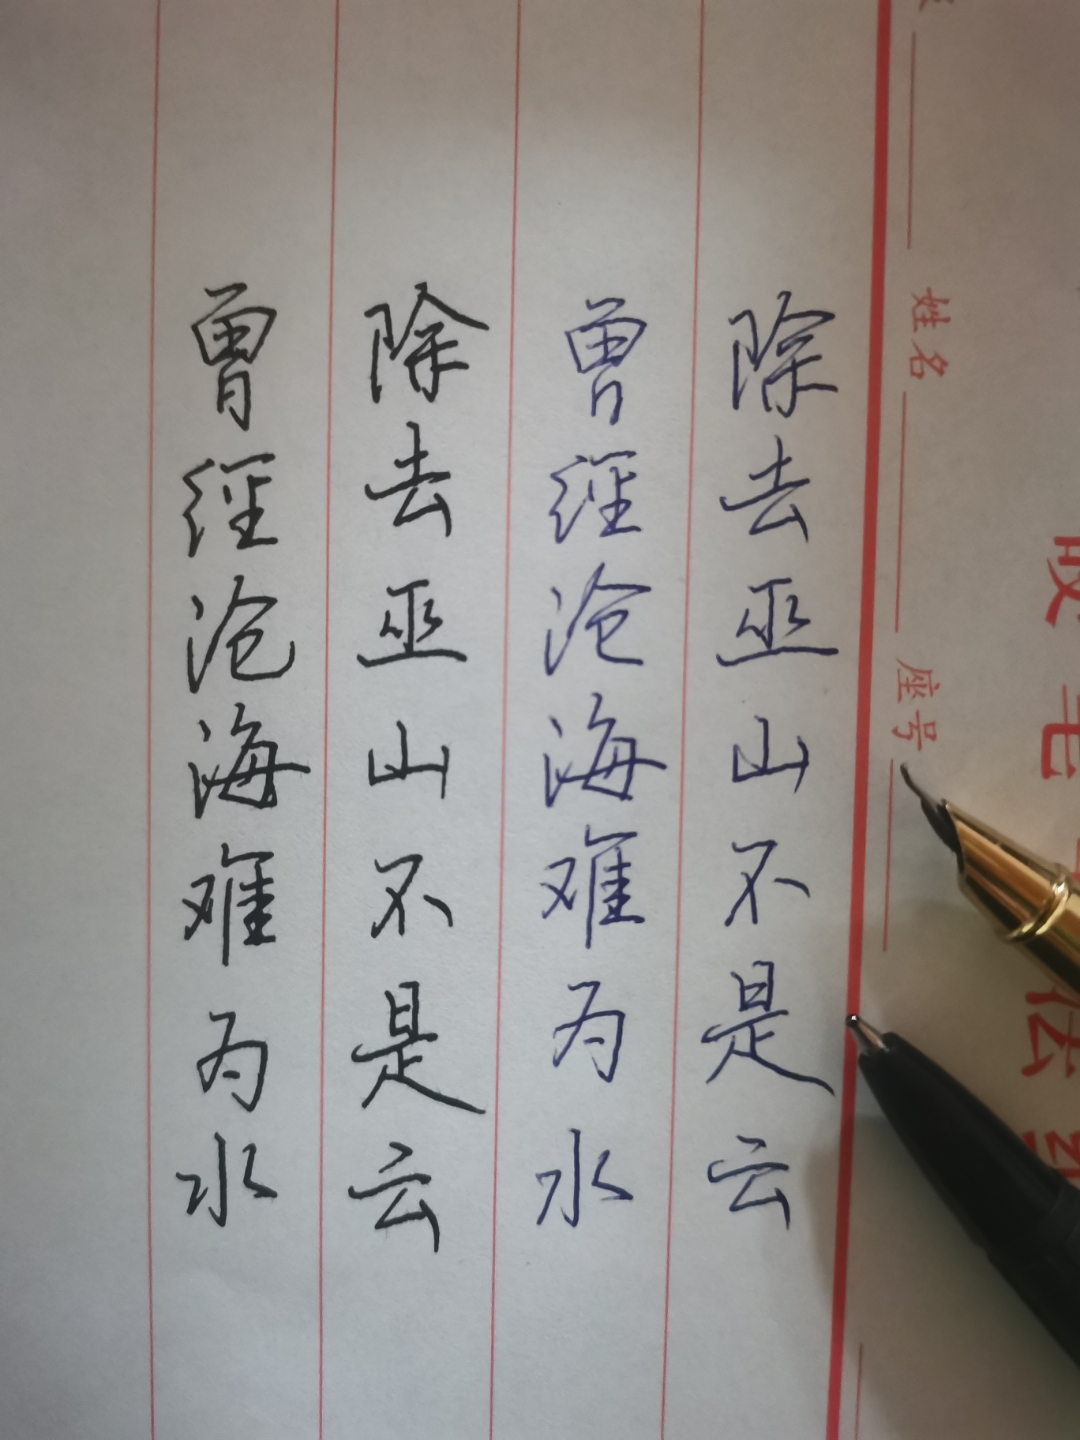 曾经沧海难为水
除去巫山不是云
曾经沧海难为水
除去巫山不是云
姓名
座号